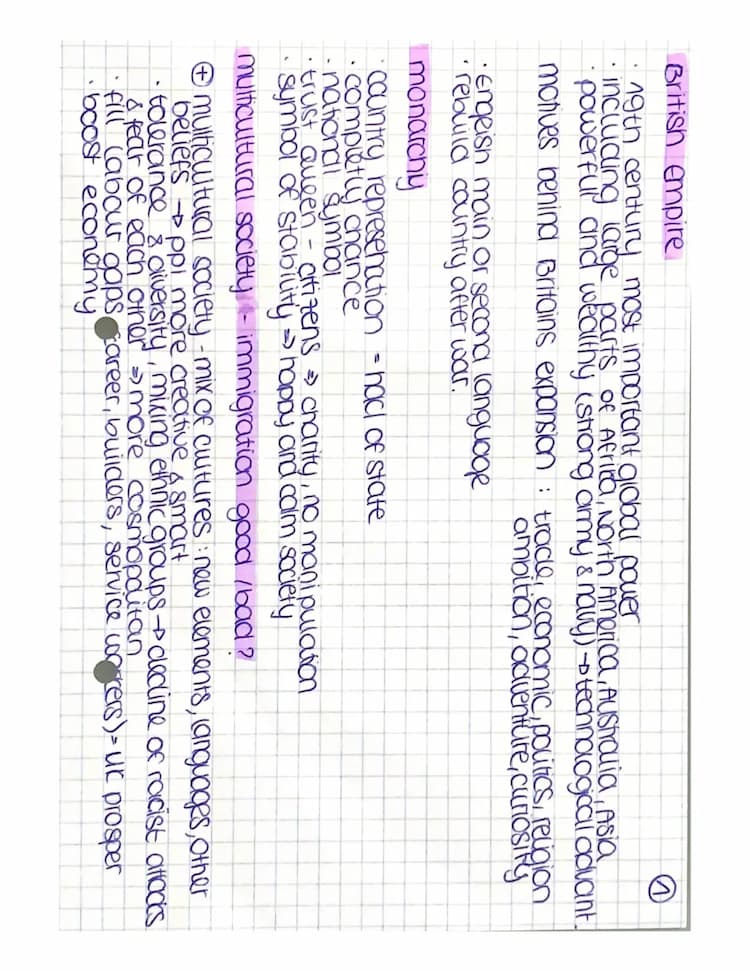 ①
British Empire
· 19th century most important global power
· including large parts of Afrika, North America, Australia, Asia
· powerful and wealthy (strong army & navy) → technological advant.
motives behind Britains expansion : trade, economic, politics, religion
ambition, adventure, curiosity
· English main or second language
· rebuild country after war.
monarchiy
· country represenation = hacl of state
· completly chance
· national symbol
· trust queen - citizens ⇒ charity, no manipulation
· symbol of stability ⇒ happy and calm society
multicultural society - immigration good / bad?
⊕ multicultural society - mix of cultures : new elements, languages, other
beliefs → ppl more creative & smart
· tolerance & diversity, mixing ethnic groups → decline of racist attacks
& fear of each other ⇒ more cosmopolitan
· fill labour gaps career, builders, service workers) = UK prosper
· boost economy